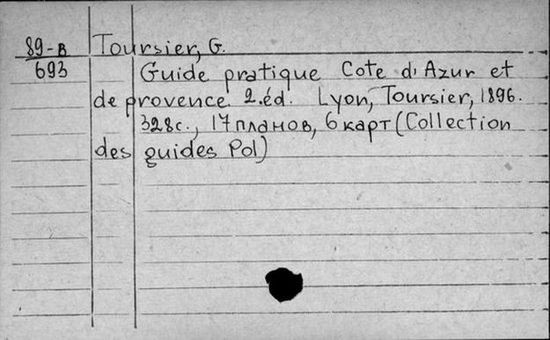 89-в Toursier, G.
693 Guide pratique Cote d'Azur et
de provence 2.éd. Lyon, Toursier, 1896.
328с., 17 планов, 6 карт (Collection
des guides Pol)